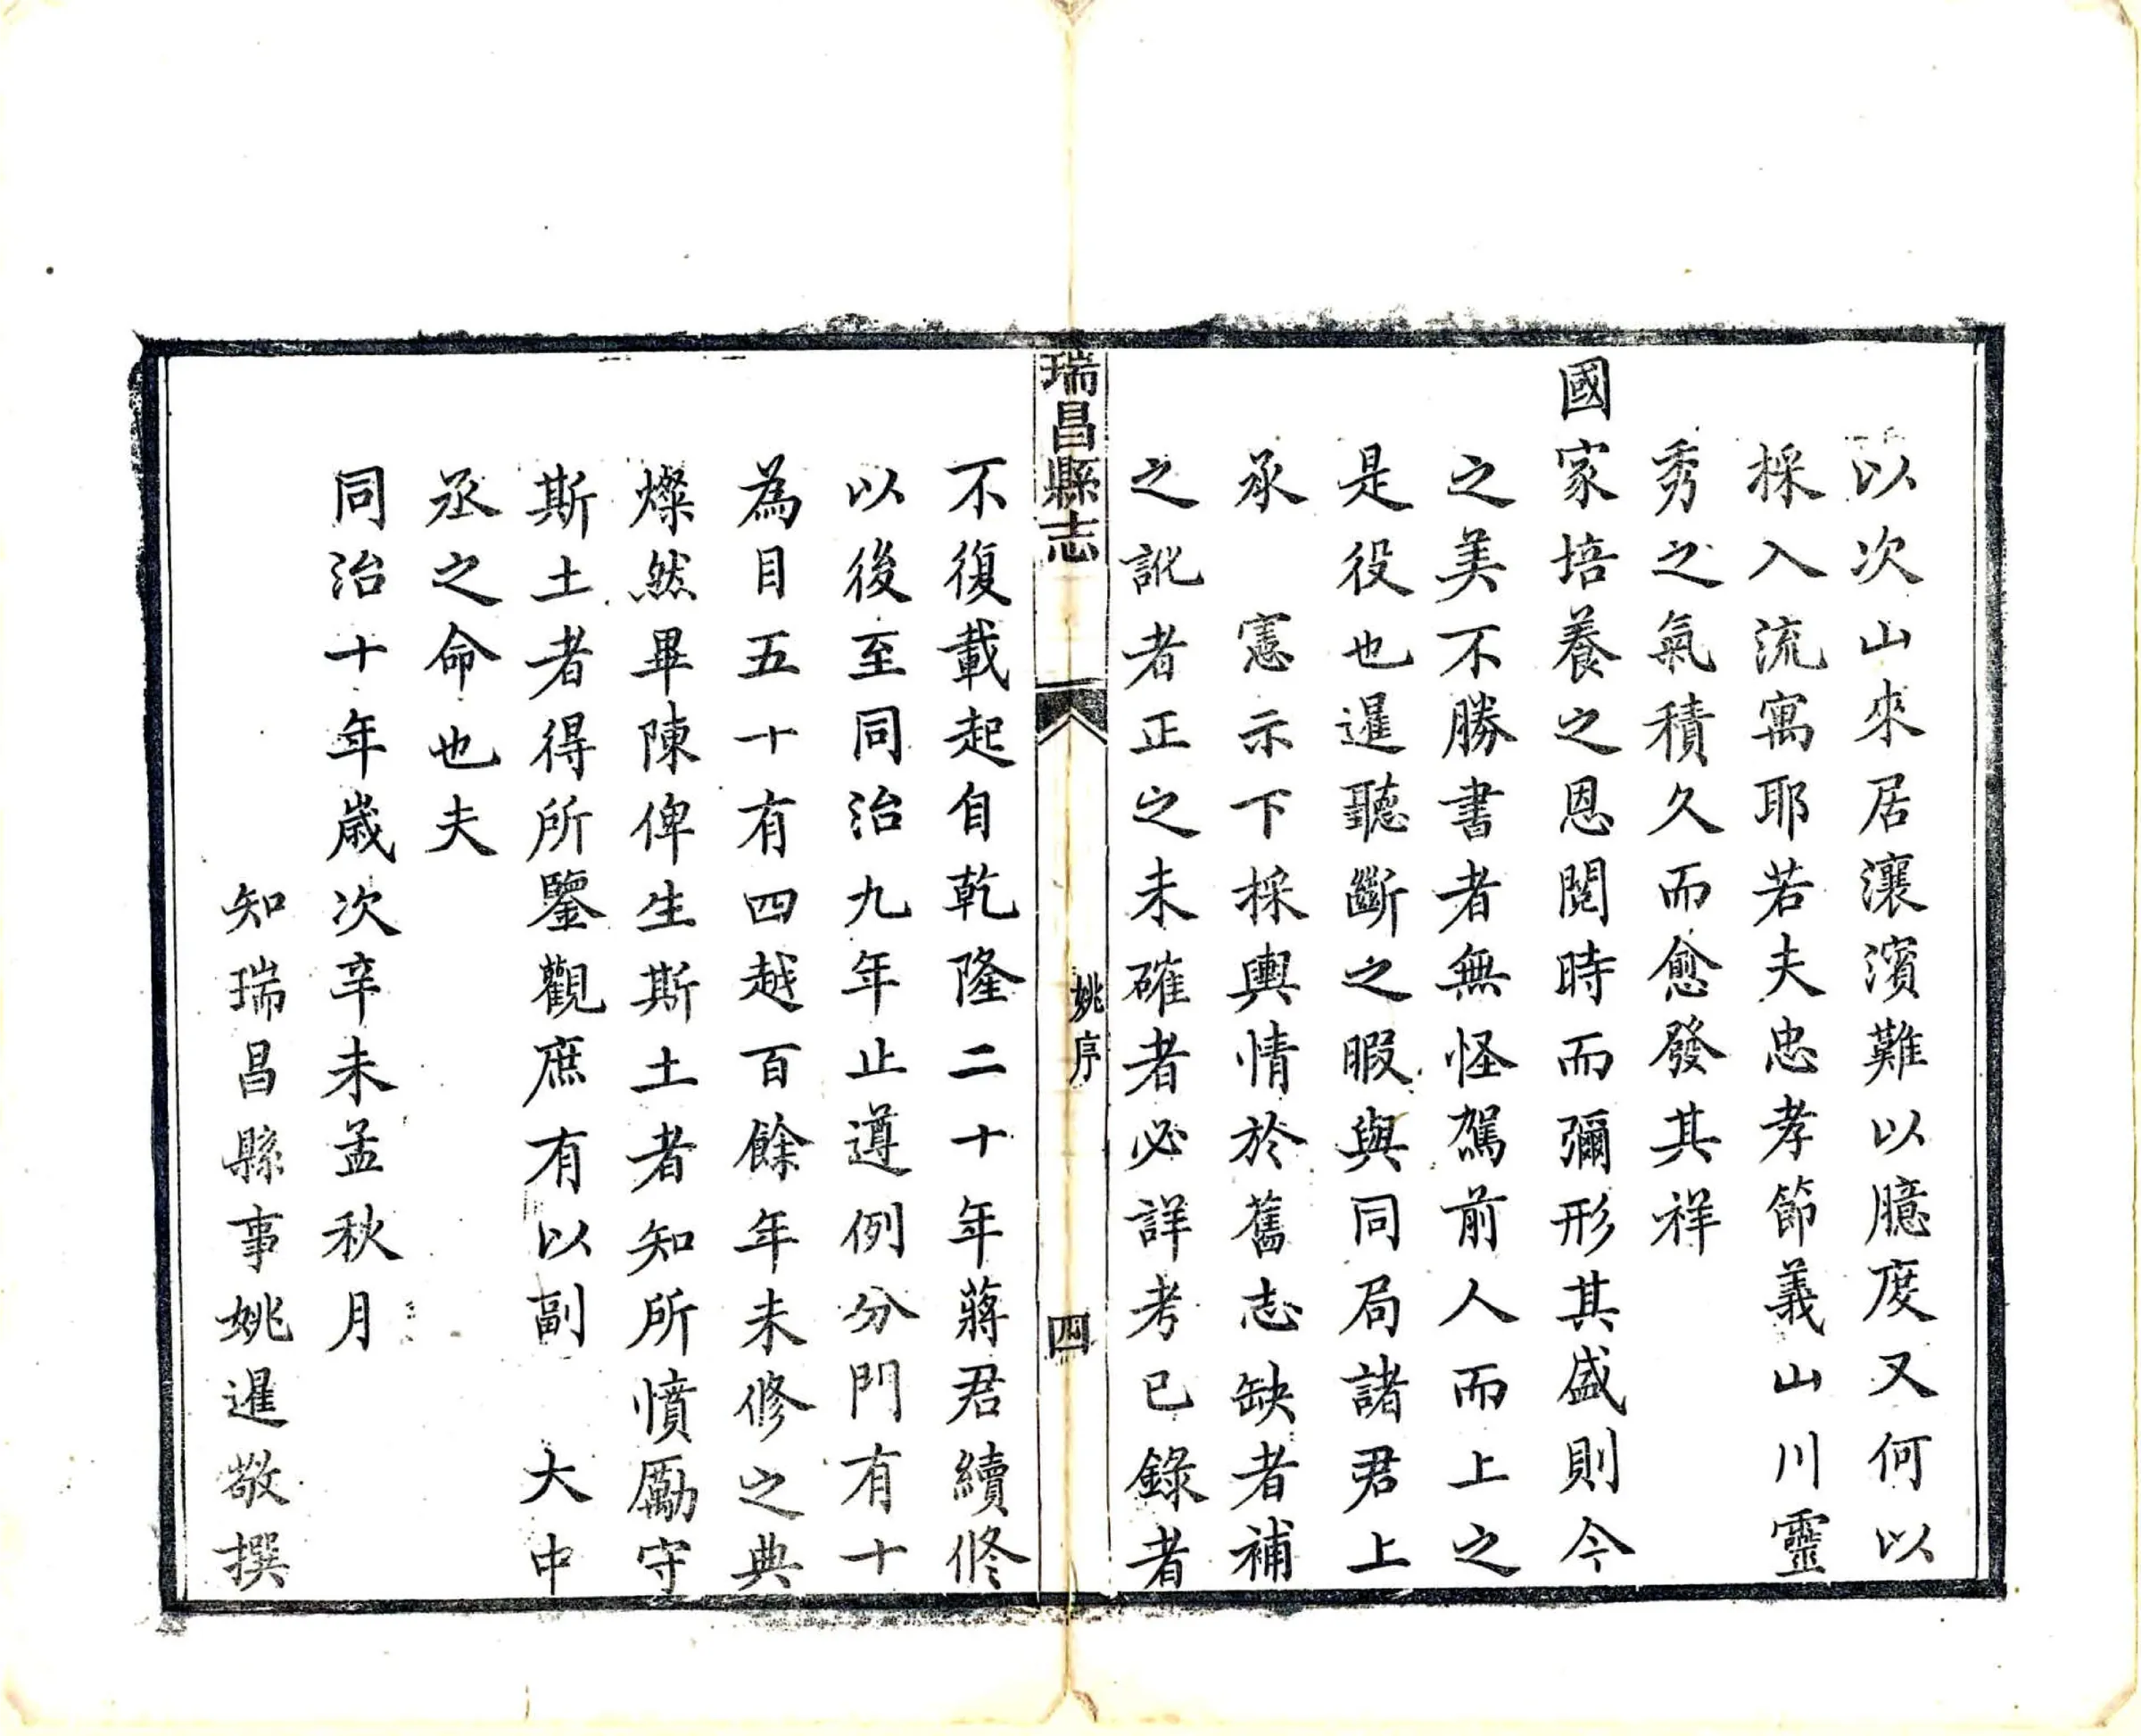 以次山來居瀼濱難以臆度又何以
採入流寓耶若夫忠孝節義山川靈
秀之氣積久而愈發其祥
國家培養之恩閱時而彌形其盛則今
之美不勝書者無怪駕前人而上之
是役也暹聽斷之暇與同局諸君上
承　憲示下採輿情於舊志缺者補
之訛者正之未確者必詳考已錄者
瑞昌縣志
姚序
四
不復載起自乾隆二十年蔣君續修
以後至同治九年止遵例分門有十
為目五十有四越百餘年未修之典
燦然畢陳俾生斯土者知所憤勵守
斯土者得所鑒觀庶有以副　大中
丞之命也夫
同治十年歲次辛未孟秋月
知瑞昌縣事姚暹敬撰